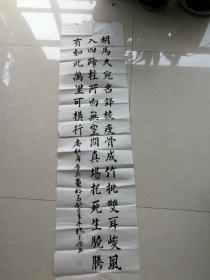 胡馬大宛名鋒棱瘦骨成竹批雙耳峻風
入四蹄輕所向無空闊真堪托死生驍騰
有如此萬里可橫行